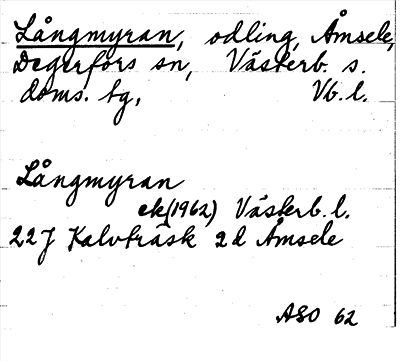 Långmyran, odling, Åmsele,
Degerfors sn, Västerb. s.
doms. tg, Vb. l.
Långmyran
ek(1962) Västerb. l.
22J Kalvträsk 2d Åmsele
ASO 62